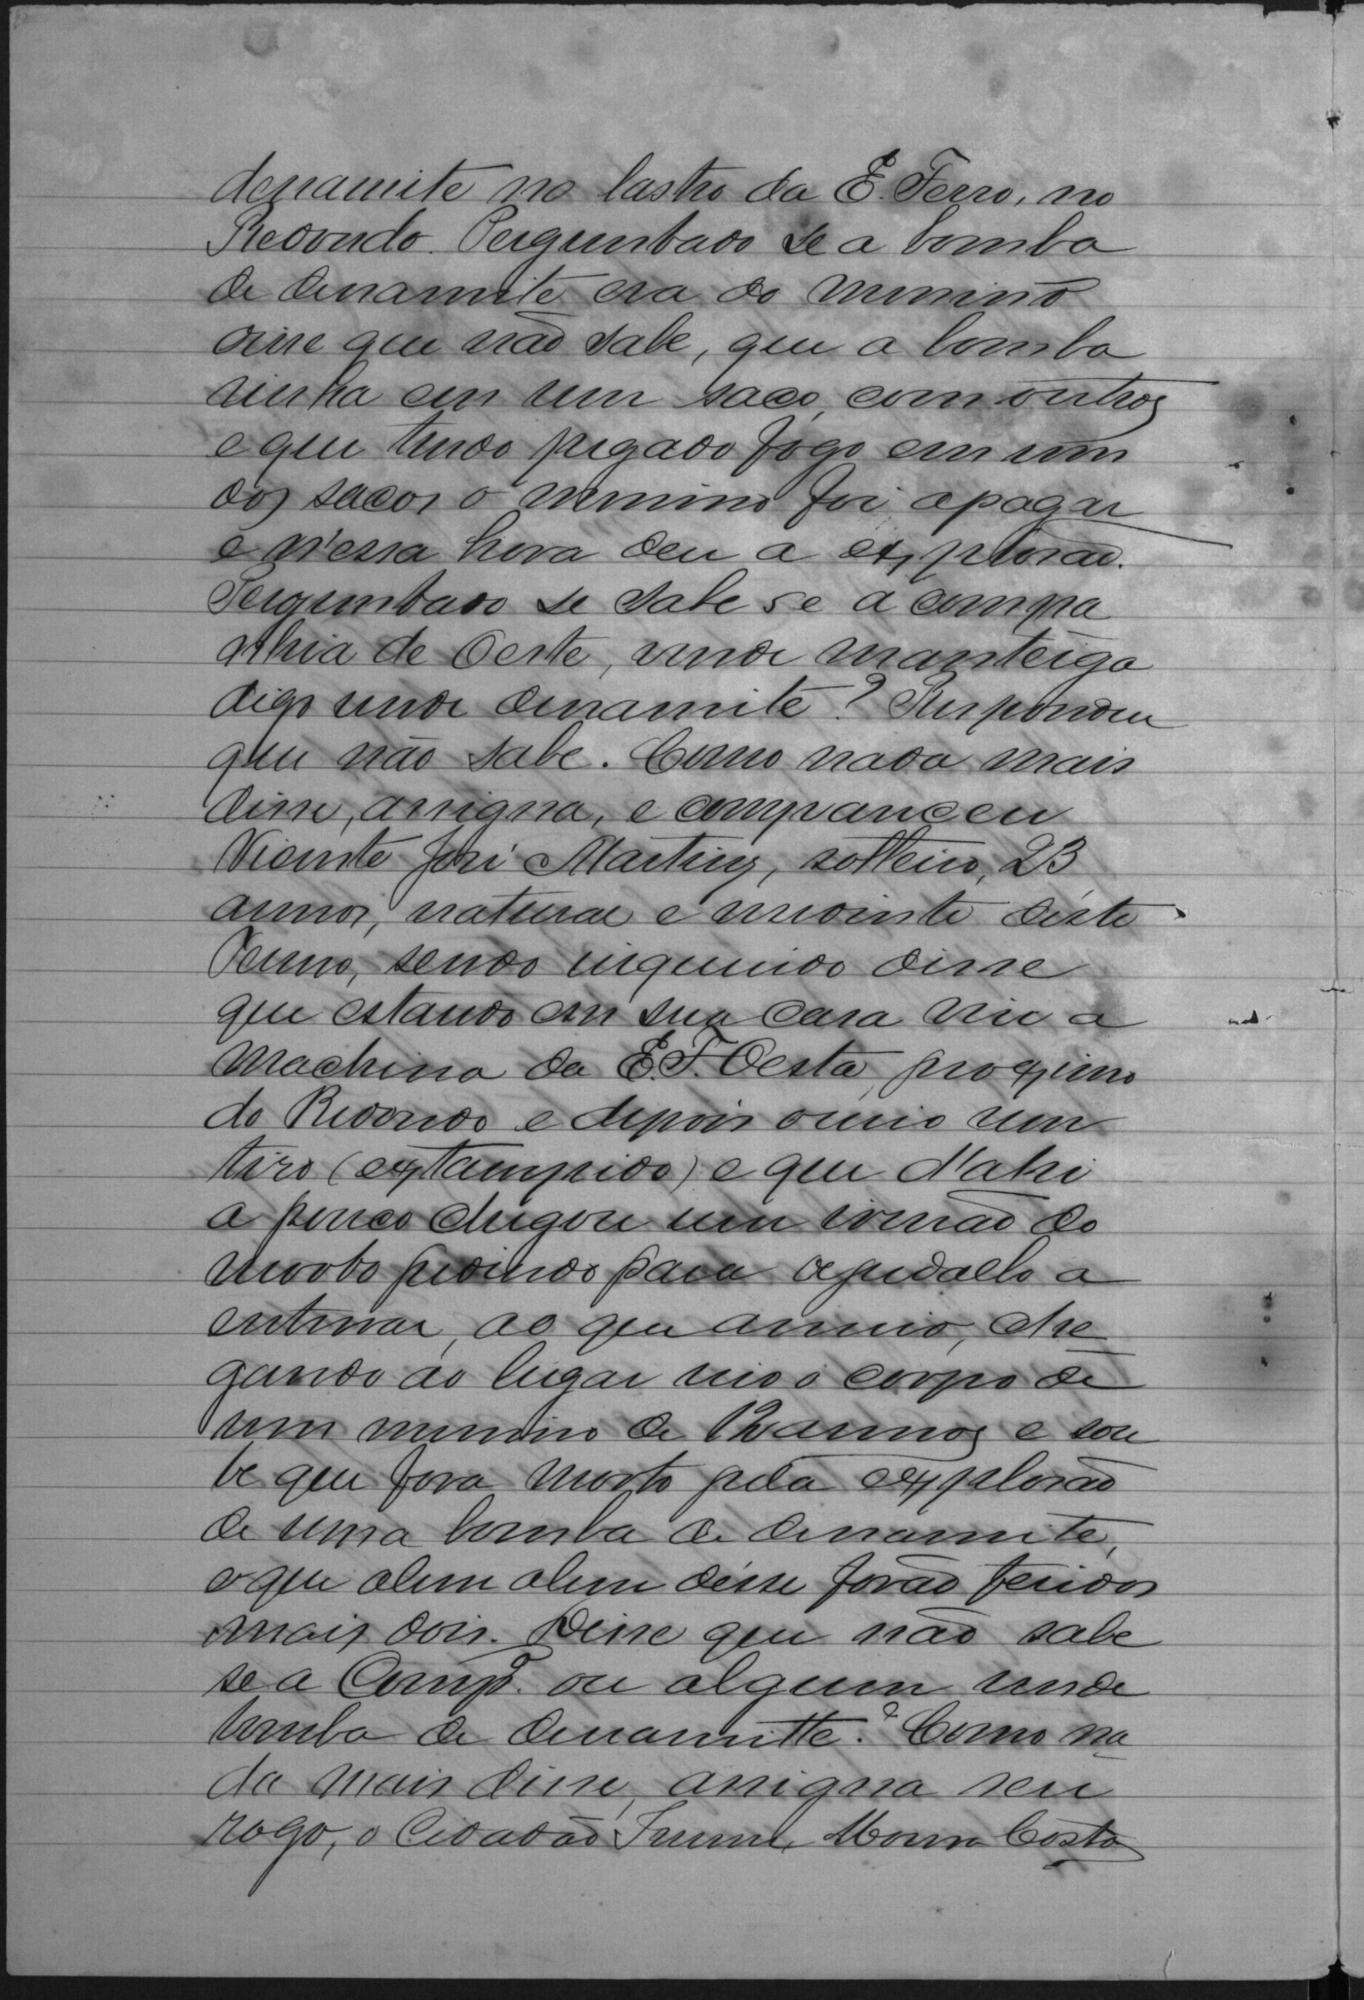 denamite no lastro da E. Ferro, no
Redondo. Perguntado se a bomba
de denamite era do menino
disse que não sabe, que a bomba
vinha em um saco, com outros
e que tendo pegado fogo em um
dos sacos o menino foi apagar
e n'essa hora deu a explosão.
Perguntado se sabe se a compa
nhia de Oeste, vende manteiga
digo vende denamite? Respondeu
que não sabe. Como nada mais
disse, assigna, e compareceu
Vicente José Martins, solteiro, 23
annos, natural e residente d'este
Termo, sendo inquerido disse
que estando em sua casa viu a
machina da E. F. Oeste, proximo
do Redondo e depois ouvio um
tiro (extampido) e que d'ahi
a pouco chegou um irmão do
morto pedindo para ajudallo a
enterrar, ao que annuio, che
gando ao lugar vio o corpo de
um menino de 12 annos e sou
be que fora morto pela explosão
de uma bomba de denamite,
e que alem alem d'esse forão feridos
mais dois. Disse que não sabe
se a Comp.ª ou alguem vende
bomba de denamitte.? Como na
da mais disse, assigna seu
rogo, o Cidadão Moura Costa